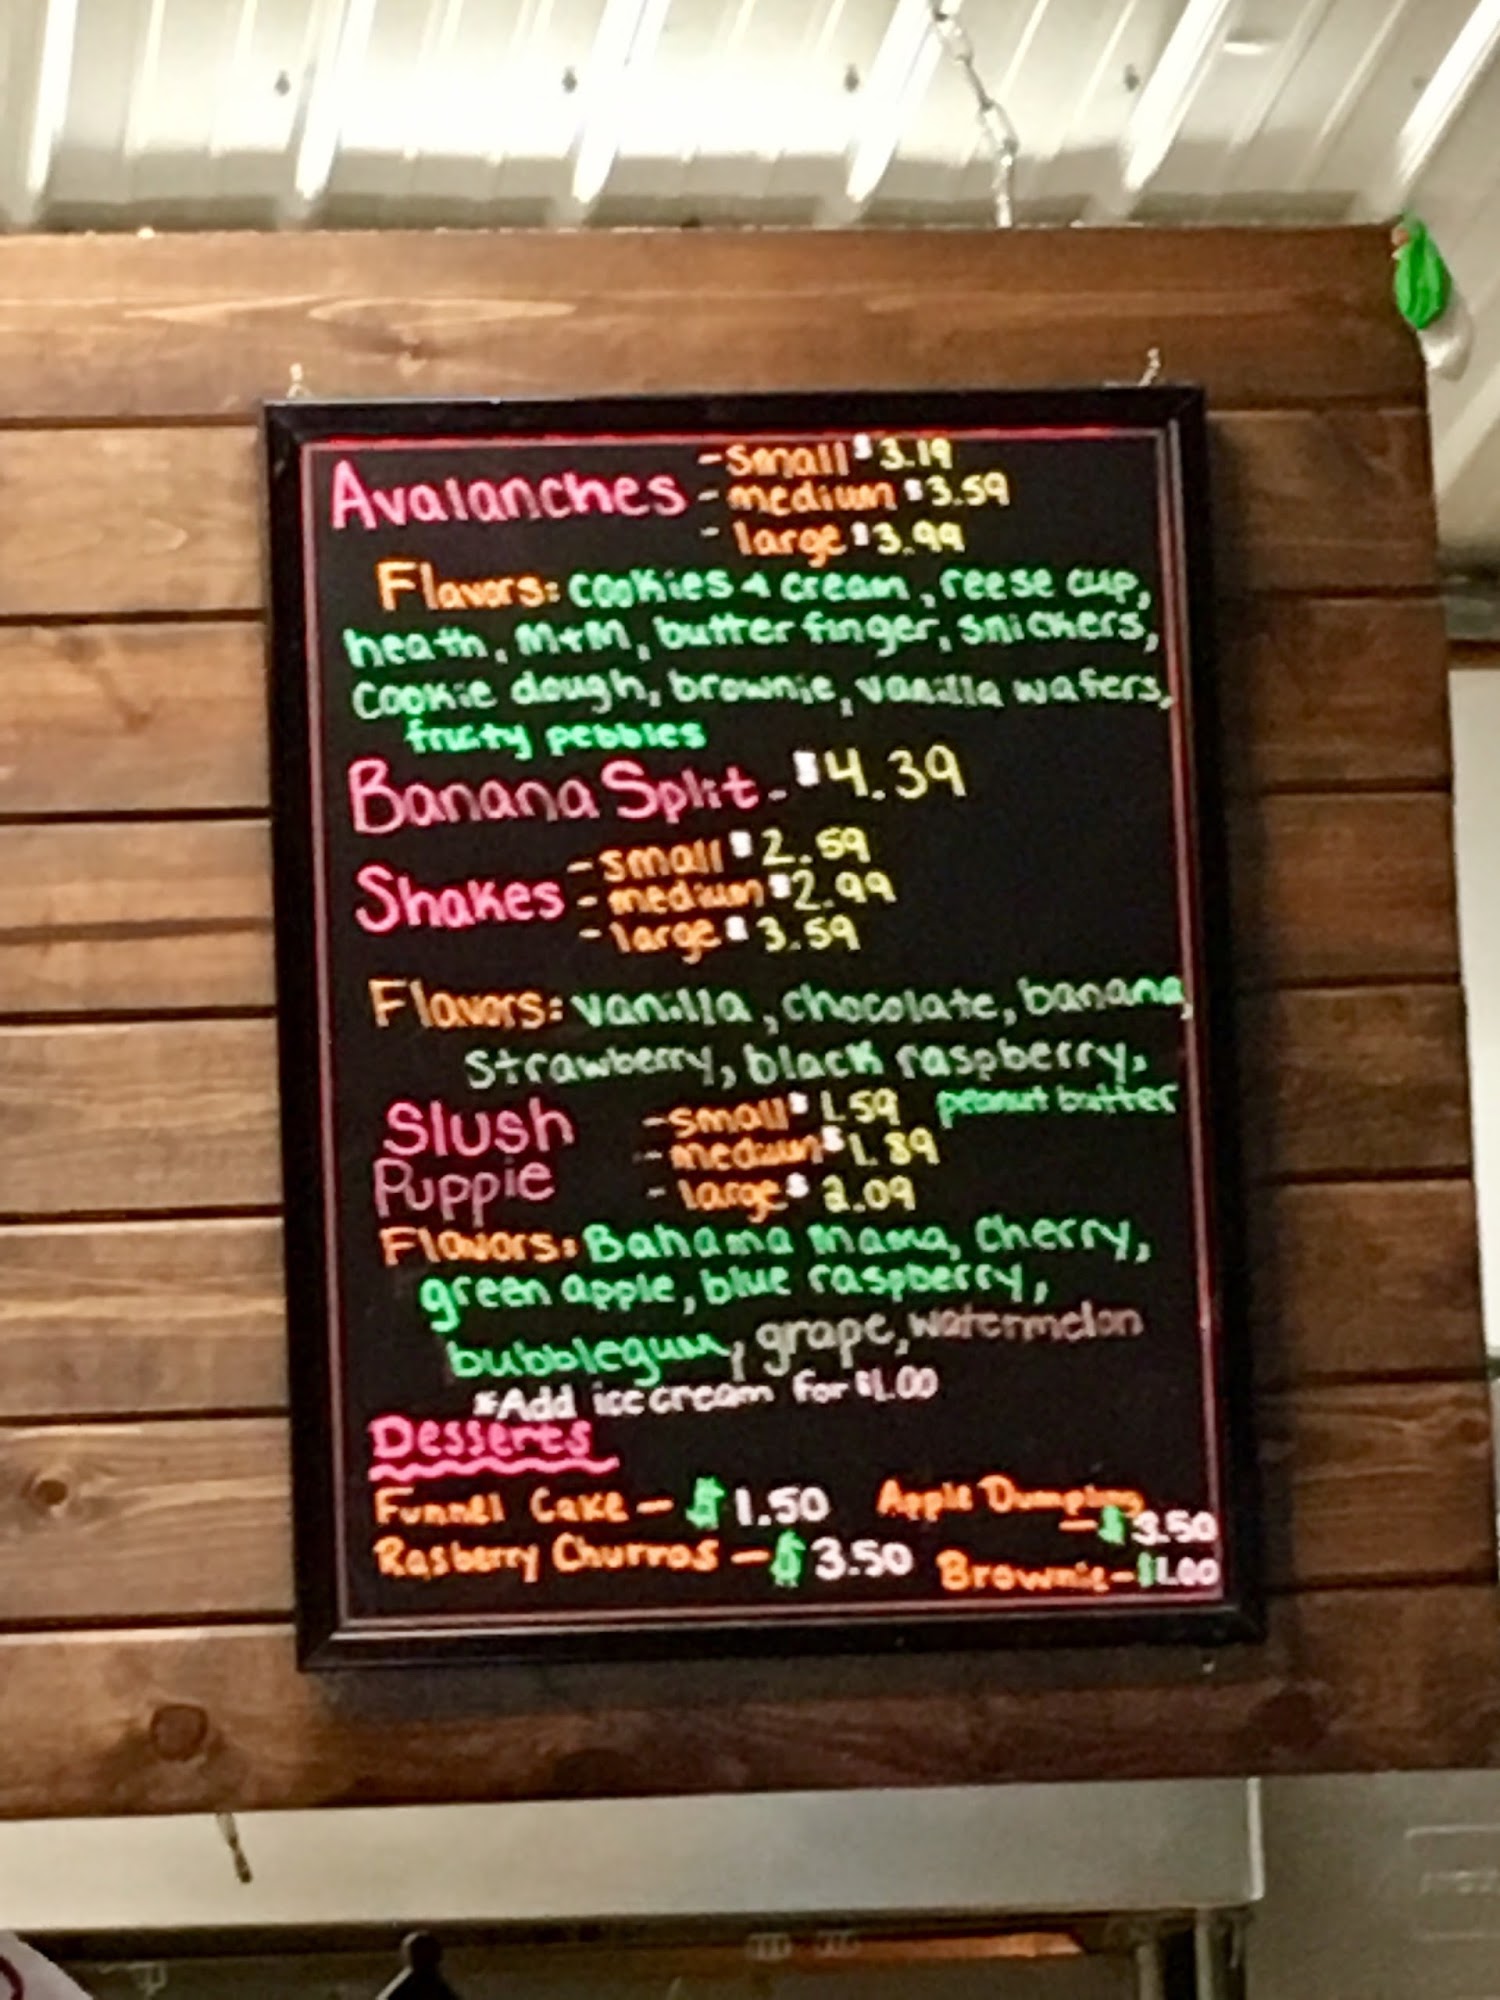 Avalanches - small $3.19
- medium $3.59
- large $3.99
Flavors: cookies + cream, reese cup,
heath, M+M, butter finger, snickers,
cookie dough, brownie, vanilla wafers,
fruity pebbles
Banana Split - $4.39
Shakes - small $2.59
- medium $2.99
- large $3.59
Flavors: vanilla, chocolate, banana,
strawberry, black raspberry,
peanut butter
Slush Puppie - small $1.59
- medium $1.89
- large $2.09
Flavors: Bahama mama, cherry,
green apple, blue raspberry,
bubblegum, grape, watermelon
*Add ice cream for $1.00
Desserts
Funnel Cake - $1.50
Rasberry Churros - $3.50
Apple Dumpling
- $3.50
Brownie - $1.00